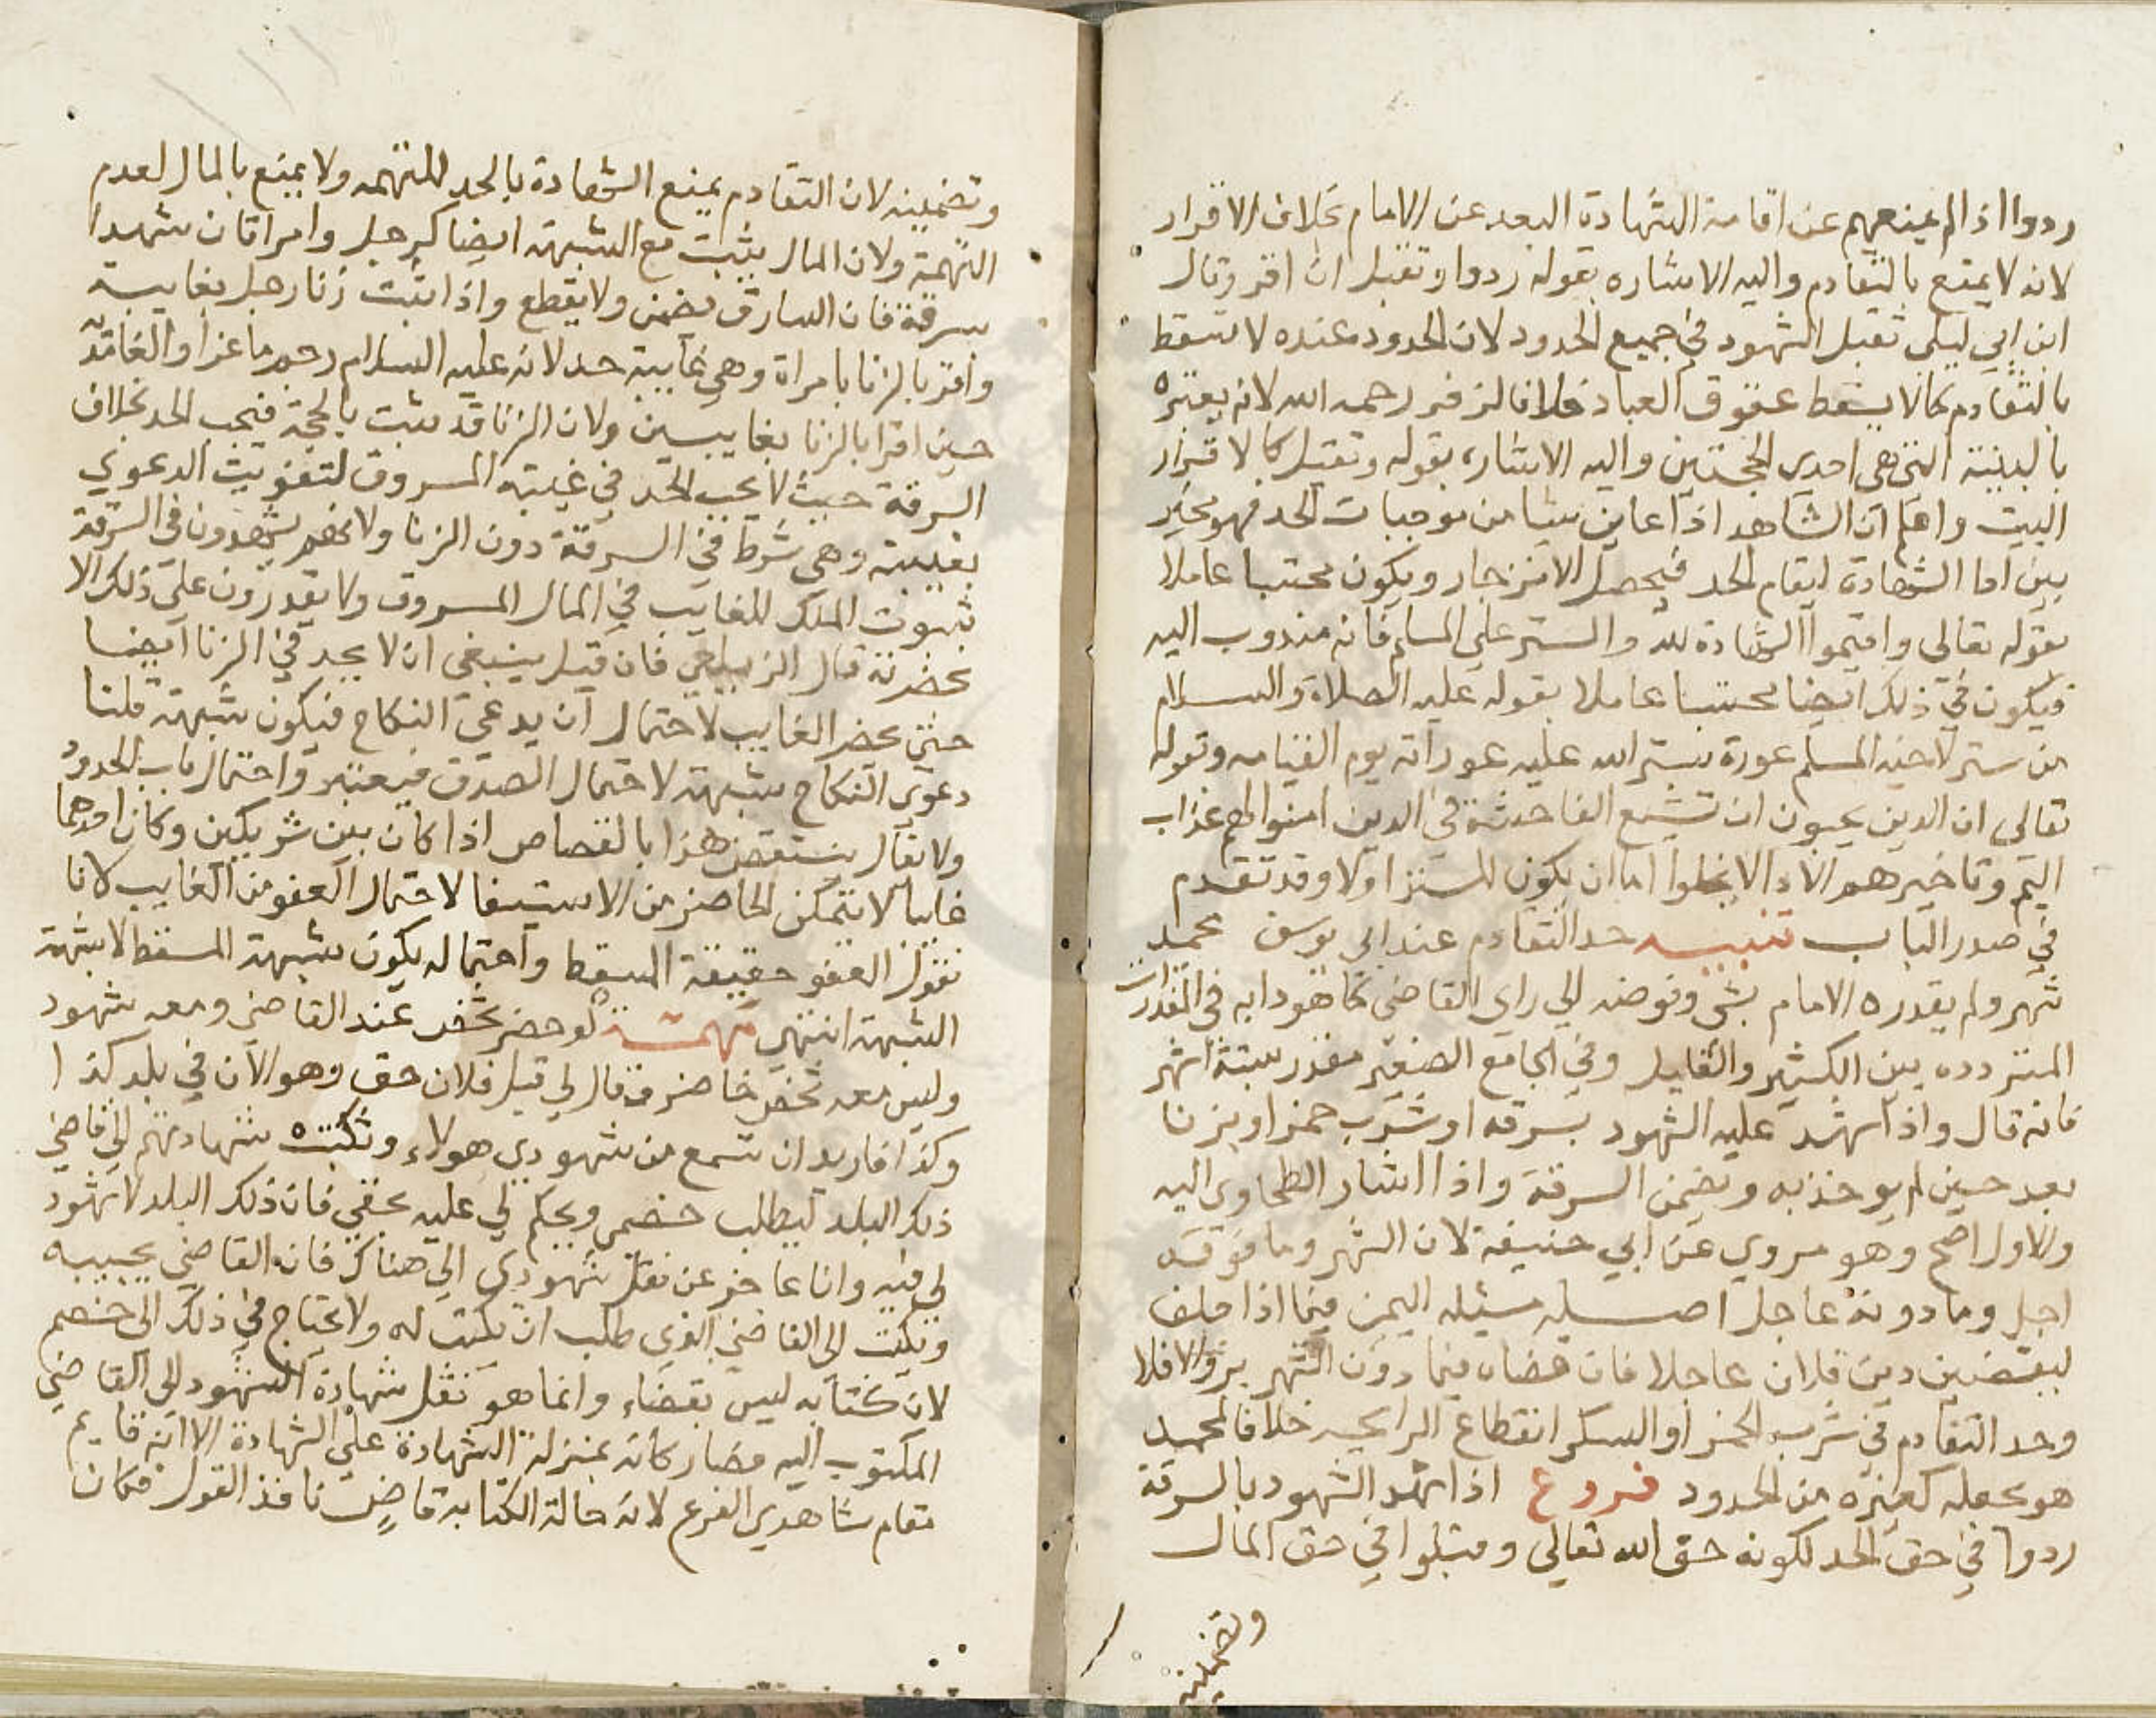 ردوا اذا لم يمنعهم عن اقامة الشهادة البعد عن الامام بخلاف الاقرار
لانه لا يمتنع بالتقادم واليه الاشاره بقوله ردوا وتقبل ان اقر وقال
ابن ابي ليلى تقبل الشهود في جميع الحدود لان الحدود عنده لا تسقط
بالتقادم كما لا يسقط حقوق العباد خلافا لزفر رحمه الله لانه يعتبره
بالبينة التي هي احدى الحجتين واليه الاشارة بقوله وتقبل كالاقرار
البيت واعلم ان الشاهد اذا عاين شيا من موجبات الحد فهو مخير
بين اما الشهادة ليقام الحد فيحصل الانزجار ويكون محتسبا عاملا
بقوله تعالى واقيموا الشهادة لله والستر على المسلم فانه مندوب اليه
فيكون في ذلك ايضا محتسبا عاملا بقوله عليه الصلاة والسلام
من ستر لاخيه المسلم عورة يستر الله عليه عوراته يوم القيامه وقوله
تعالى ان الذين يحبون ان تشيع الفاحشة في الذين امنوا لهم عذاب
اليم وتاخيرهم الاداء لا يخلوا اما ان يكون للستر اولا وقد تقدم
في صدر الباب تنبيه حد التقادم عند ابي يوسف محمد
شهر ولم يقدره الامام بشي وفوضه الي راي القاضي كما هو دابه في المقدرات
المتردده بين الكثير والقليل وفي الجامع الصغير مقدر بستة اشهر
فانه قال واذا شهد عليه الشهود بسرقه او شرب خمر او بزنا
بعد حين لم يوخذ به وتضمن السرقة واذا اشار الطحاوي اليه
والاول اصح وهو مروي عن ابي حنيفة لان الشهر وما فوقه
اجل وما دونه عاجل اصله مسئله اليمين فيما اذا حلف
ليقضين دين فلان عاجلا فان قضاه فيما دون الشهر بر والا فلا
وحد التقادم في شرب الخمر او السكر انقطاع الرايحه خلافا لمحمد
هو يجعله كغيره من الحدود فروع اذا شهد الشهود بالسرقة
ردوا في حق الحد لكونه حق الله تعالى وقبلوا في حق المال
وتضمينه
وتضمينه لان التقادم يمنع الشهادة بالحد للتهمه ولا يمنع بالمال لعدم
التهمة ولان المال يثبت مع الشبهة ايضا كرجل وامراتان شهدا
سرقة فان السارق يضمن ولا يقطع واذا اثبت زنا رجل بغايبة
واقر بالزنا بامراة وهي غايبة حد لانه عليه السلام رحم ماعزا والغامدية
حين اقرا بالزنا بغايبين ولان الزنا قد يثبت بالحجة فيجب الحد بخلاف
السرقة حيث لا يجب الحد في غيبة المسروق لتفويت الدعوي
بغيبته وهي شرط في السرقة دون الزنا ولانهم يشهدون في السرقة
بثبوت الملك للغايب في المال المسروق ولا يقدرون على ذلك الا
بحضرته قال الزيلعي فان قيل ينبغي ان لا يحد في الزنا ايضا
حتى يحضر الغايب لاحتمال ان يدعي النكاح فيكون شبهة قلنا
دعوي النكاح شبهة لاحتمال الصدق فيعتبر واحتمال باب الحدود
ولا يقال ينتقض هذا بالقصاص اذا كان بين شريكين وكان احدهما
غايبا لا يتمكن الحاضر من الاستيفا لاحتمال العفو من الغايب لانا
نقول العفو حقيقة المسقط واحتماله يكون شبهة المسقط لا شبهة
الشبهة انتهى مهمة لو حضر شخص عند القاضي ومعه شهود
وليس معه شخص حاضر وقال لي قبل فلان حق وهو الان في بلد كذا
وكذا فاريد ان تسمع من شهودي هولاء وتكتب شهادتهم الي قاضي
ذلك البلد ليطلب خصمي ويحكم لي عليه بحقي فان ذلك البلد لا شهود
لي فيه وانا عاجز عن نقل شهودي الي هناك فان القاضي يجيبه
ويكتب الى القاضي الذي طلب ان يكتب له ولا يحتاج في ذلك الى خصم
لان كتابه ليس بقضاء وانما هو نقل شهادة الشهود الى القاضي
المكتوب اليه فصار كانه بمنزلة الشهادة على الشهادة الا انه قايم
مقام شاهدي الفرع لانه حالة الكتابة قاض نافذ القول فكان